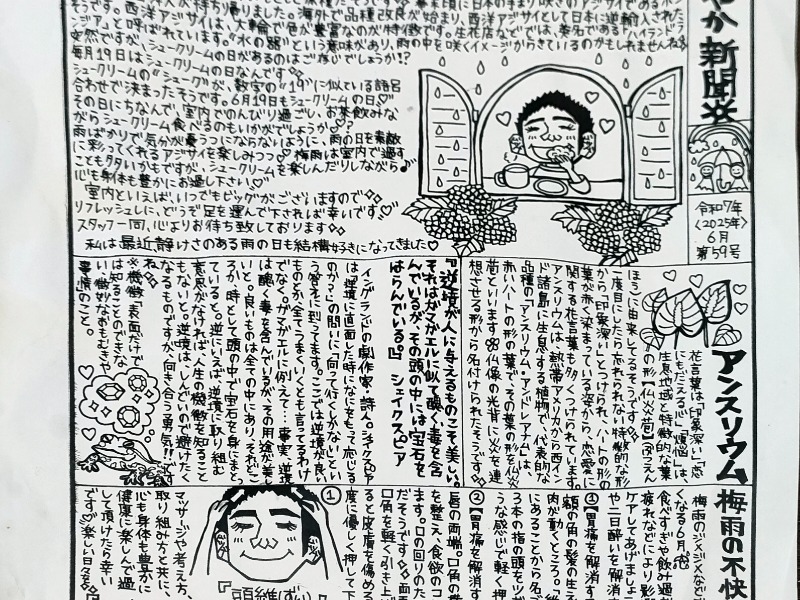 やか新聞
令和7年
〈2025年〉
6月
第59号
ジア』と呼ばれています。"水の器"という意味があり、雨の中を咲くイメージからきているのかもしれませんね
突然ですが、シュークリームの日があるのはご存じでしょうか!?
毎月19日はシュークリームの日なんです
シュークリームの"シューク"が、数字の"19"に似ている語呂
合わせで決まったそうです。6月19日もシュークリームの日♡
その日にちなんで、室内でのんびり過ごし、お茶飲みな
がらシュークリーム食べるのもいかがでしょうか♡?
雨ばかりで気分が憂うつにならないように、雨の日を素敵
に彩ってくれるアジサイを楽しみつつ♡梅雨は室内で過す
こともタタいかもですが、シュークリームを楽しんだりしながら♪
心も身体も豊かにお過し下さい♡
室内といえば、いつでもビッグがございますので
リフレッシュしに、どうぞ足を運んで下されば幸いです♡
スタッフ一同、心よりお待ち致しております
私は最近静けさのある雨の日も結構好きになってきました♡
アンスリウム
花言葉は「印象深い」「恋
にもだえる心」「煩悩」は、
生息地域と特徴的な葉
の形【仏炎苞】(ぶつえん
ほう)に由来してるそうです
一度目にしたら忘れられない特徴的な形
から「印象深い」とつけられ、ハートの形の
葉が赤く染まっている姿から、恋愛に
関する花言葉も多くつけられています。
アンスリウムは、熱帯アメリカから西イン
ド諸島に生息する植物で、代表的な
品種の『アンスリウム・アンドレアナム』は、
赤いハートの形の葉で、その葉の形を仏炎
苞といいます 仏像の光背に火を連
想させる形から名付けられたそうです
『逆境が人に与えるものこそ美しい。
それはガマガエルに似て醜く毒を含
んでいるが、その頭の中には宝石を
はらんでいる』 シェイクスピア
イングランドの劇作家・詩人。シェイクスピア
は逆境に直面した時になにをもって応じる
のか?」の問いに、「向って行くしかない」とい
う答えに到ってます。ここでは逆境が良い
ものとか、全てうまくいくとも言ってるわけ
でなく、ガマガエルに例えて…事実、逆境
は醜く毒を含んでいるが、その用途が美し
い。と。良いものは全ての中にあり、それどこ
ろか、時として頭の中で宝石を身にまとっ
ていると。逆にいえば、逆境に取り組む
意思がなければ、人生の機微を知ること
もないと。逆境は、しんどいので避けたく
なるものですが、向き合う勇気!!です
ね
※機微・表面だけで
は知ることのできな
い、微妙なおもむきや
事情のこと。
梅雨の不快
梅雨のジメジメなど
くなる6月
食べすぎや飲み過ぎ
疲れなどにより影
ケアしてあげましょ
や二日酔いを解消
①【胃痛を解消す
額の角の髪の生え
肉が動くところ。「絶
にあることから名づ
3本の指の頭をツボ
うな感じで軽く押
②【胃痛を解消す
唇の両端。口角の横
を整え、食欲のコ
ます。口の回りのた
だそうです 両面
口角を軽く引き上
ると皮膚を傷める
度に優しく押して下
①
マッサージや考え方、
取り組み方と共に、
心も身体も豊かに
健康に楽しんで過
して頂けたら幸い
です♡楽しい日々を